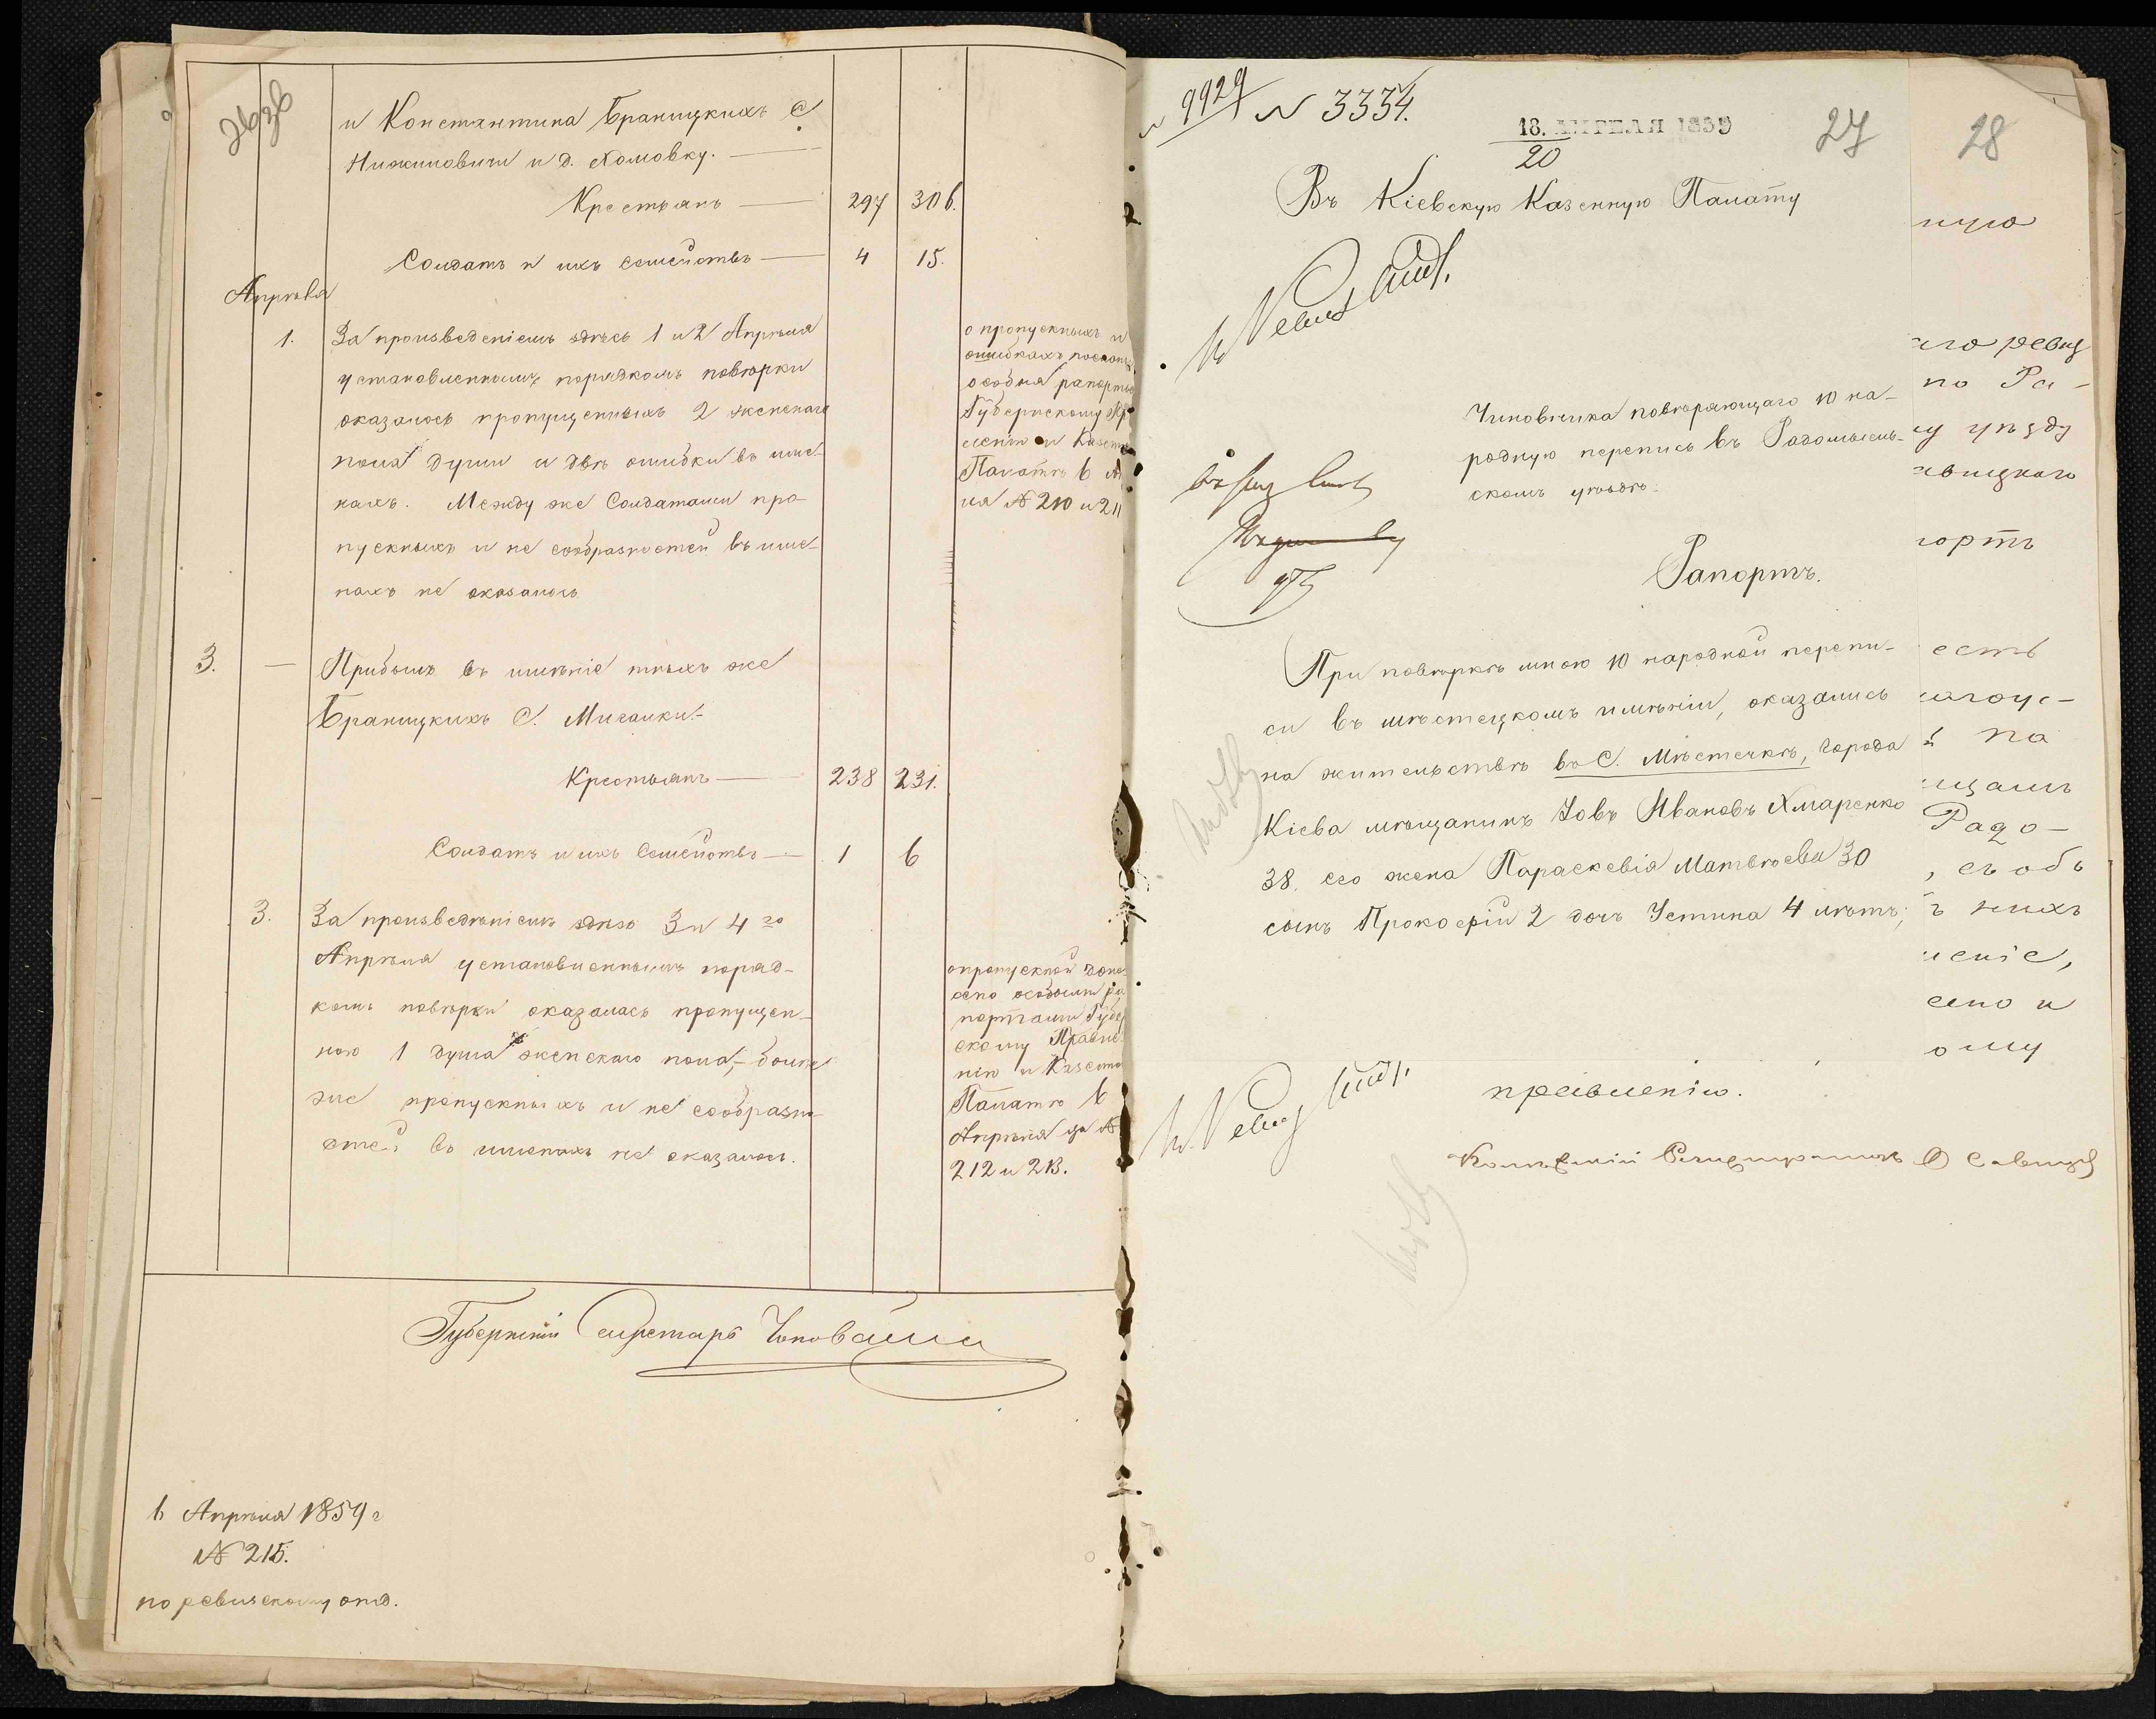 и Константина Браницкихъ С
Нижиловичи и д. Хомовку.
Крестьянъ 297 306.
Солдатъ и ихъ семействъ 4 15.
Апрѣля
1. За произведеніемъ здѣсь 1 и 2 Апрѣля
установленнымъ порядкомъ повѣрки
оказалось пропущенныхъ 2 женскаго
пола души и двѣ ошибки въ име-
нахъ. Между же Солдатами про-
пускныхъ и не сообразностей въ име-
нахъ не оказалось
о пропускныхъ и
ошибкахъ
особыя
Губернскому
и
Палатѣ 6
№ 210 и 211
3. — Прибылъ въ имѣніе тѣхъ же
Браницкихъ С. Мигалки-
Крестьянъ 238 231.
Солдатъ и ихъ Семействъ 1 6
3. За произведѣніемъ здѣсь 3 и 4го
Апрѣля установленнымъ поряд-
комъ повѣрки оказалась пропущен-
ною 1 душа женскаго пола, болѣе
же пропускныхъ и не сообразно-
стей въ именахъ не оказалось.
о пропускной доне-
сено особыми ра
портами Губер
скому Правле-
нію и Казенно
Палатѣ 6
Апрѣля за №
212 и 213.
Губернскій Секретарь
6 Апрѣля 1859 г
№ 215.
по ревизскому отд.
9929 N 3334.
18. АПРЕЛЯ 1859
20
27
28
Въ Кіевскую Казенную Палату
Чиновника повѣряющаго 10 на-
родную перепись въ Радомысль-
скомъ уѣздѣ.
Рапортъ.
При повѣркѣ мною 10 народной перепи-
си въ мѣстецкомъ имѣніи, оказались
на жительствѣ въ С. Мѣстечкѣ, города
Кіева мѣщанинъ Іовъ Ивановъ Хмаренко
38. его жена Параскевія Матвѣева 30
сынъ Прокофій 2 дочь Устина 4 лѣтъ;
ную
аго ревиз
по Ра-
у уѣзду
авицкаго
портъ
есть
на
щамъ
Радо-
, съ объ
ъ нихъ
леніе,
ено и
ому
правленію.